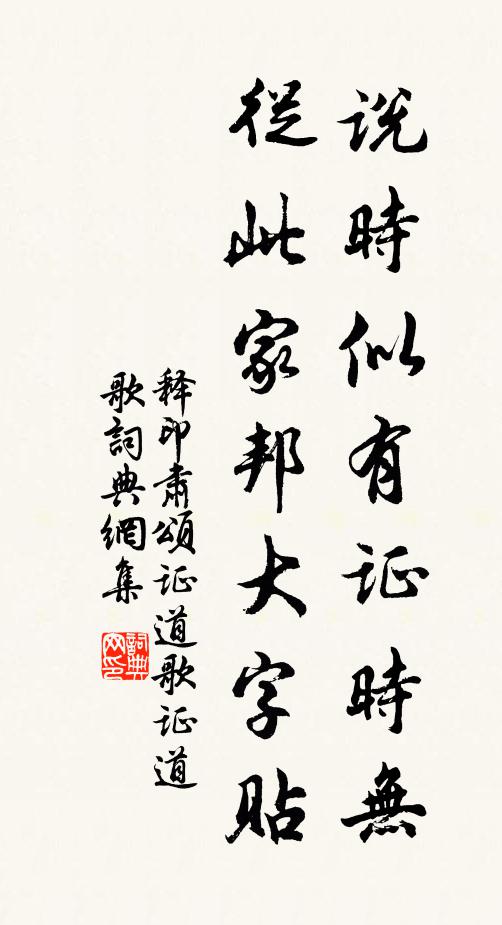 說時似有证時無
從此家邦大字貼
释印肅頌证道歌证道
歌詞典網集
詞典